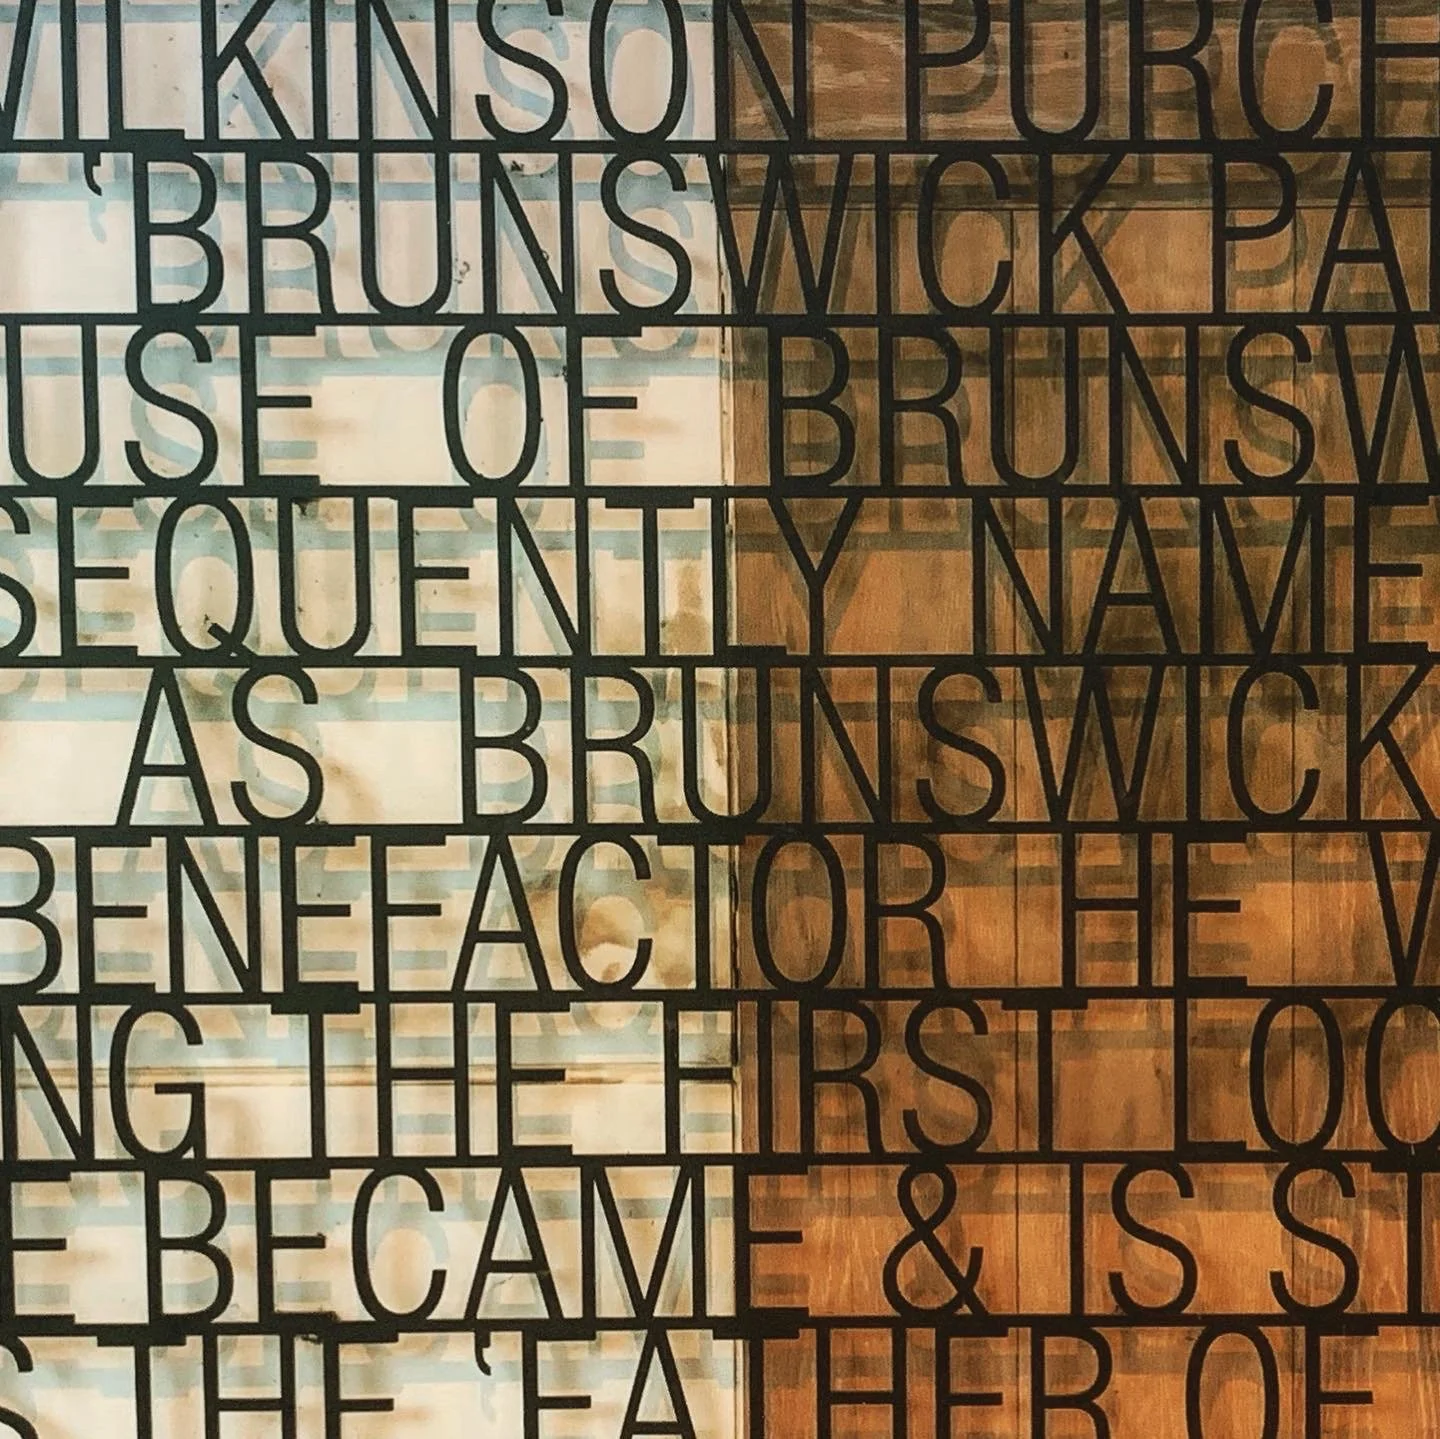 WILKINSON PURCH
'BRUNSWICK PA
USE OF BRUNSW
SEQUENTLY NAME
AS BRUNSWICK
BENEFACTOR HE W
NG THE FIRST LOC
E BECAME & IS STI
S THE 'FATHER OF